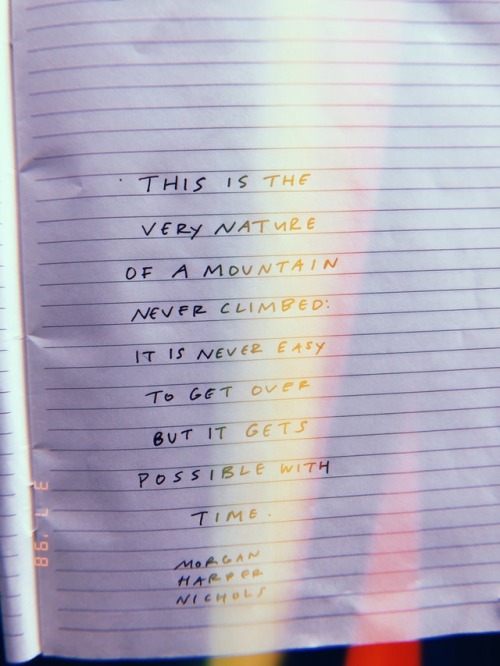 THIS IS THE
VERY NATURE
OF A MOUNTAIN
NEVER CLIMBED:
IT IS NEVER EASY
TO GET OVER
BUT IT GETS
POSSIBLE WITH
TIME.
MORGAN
HARPER
NICHOLS
3 7 '98